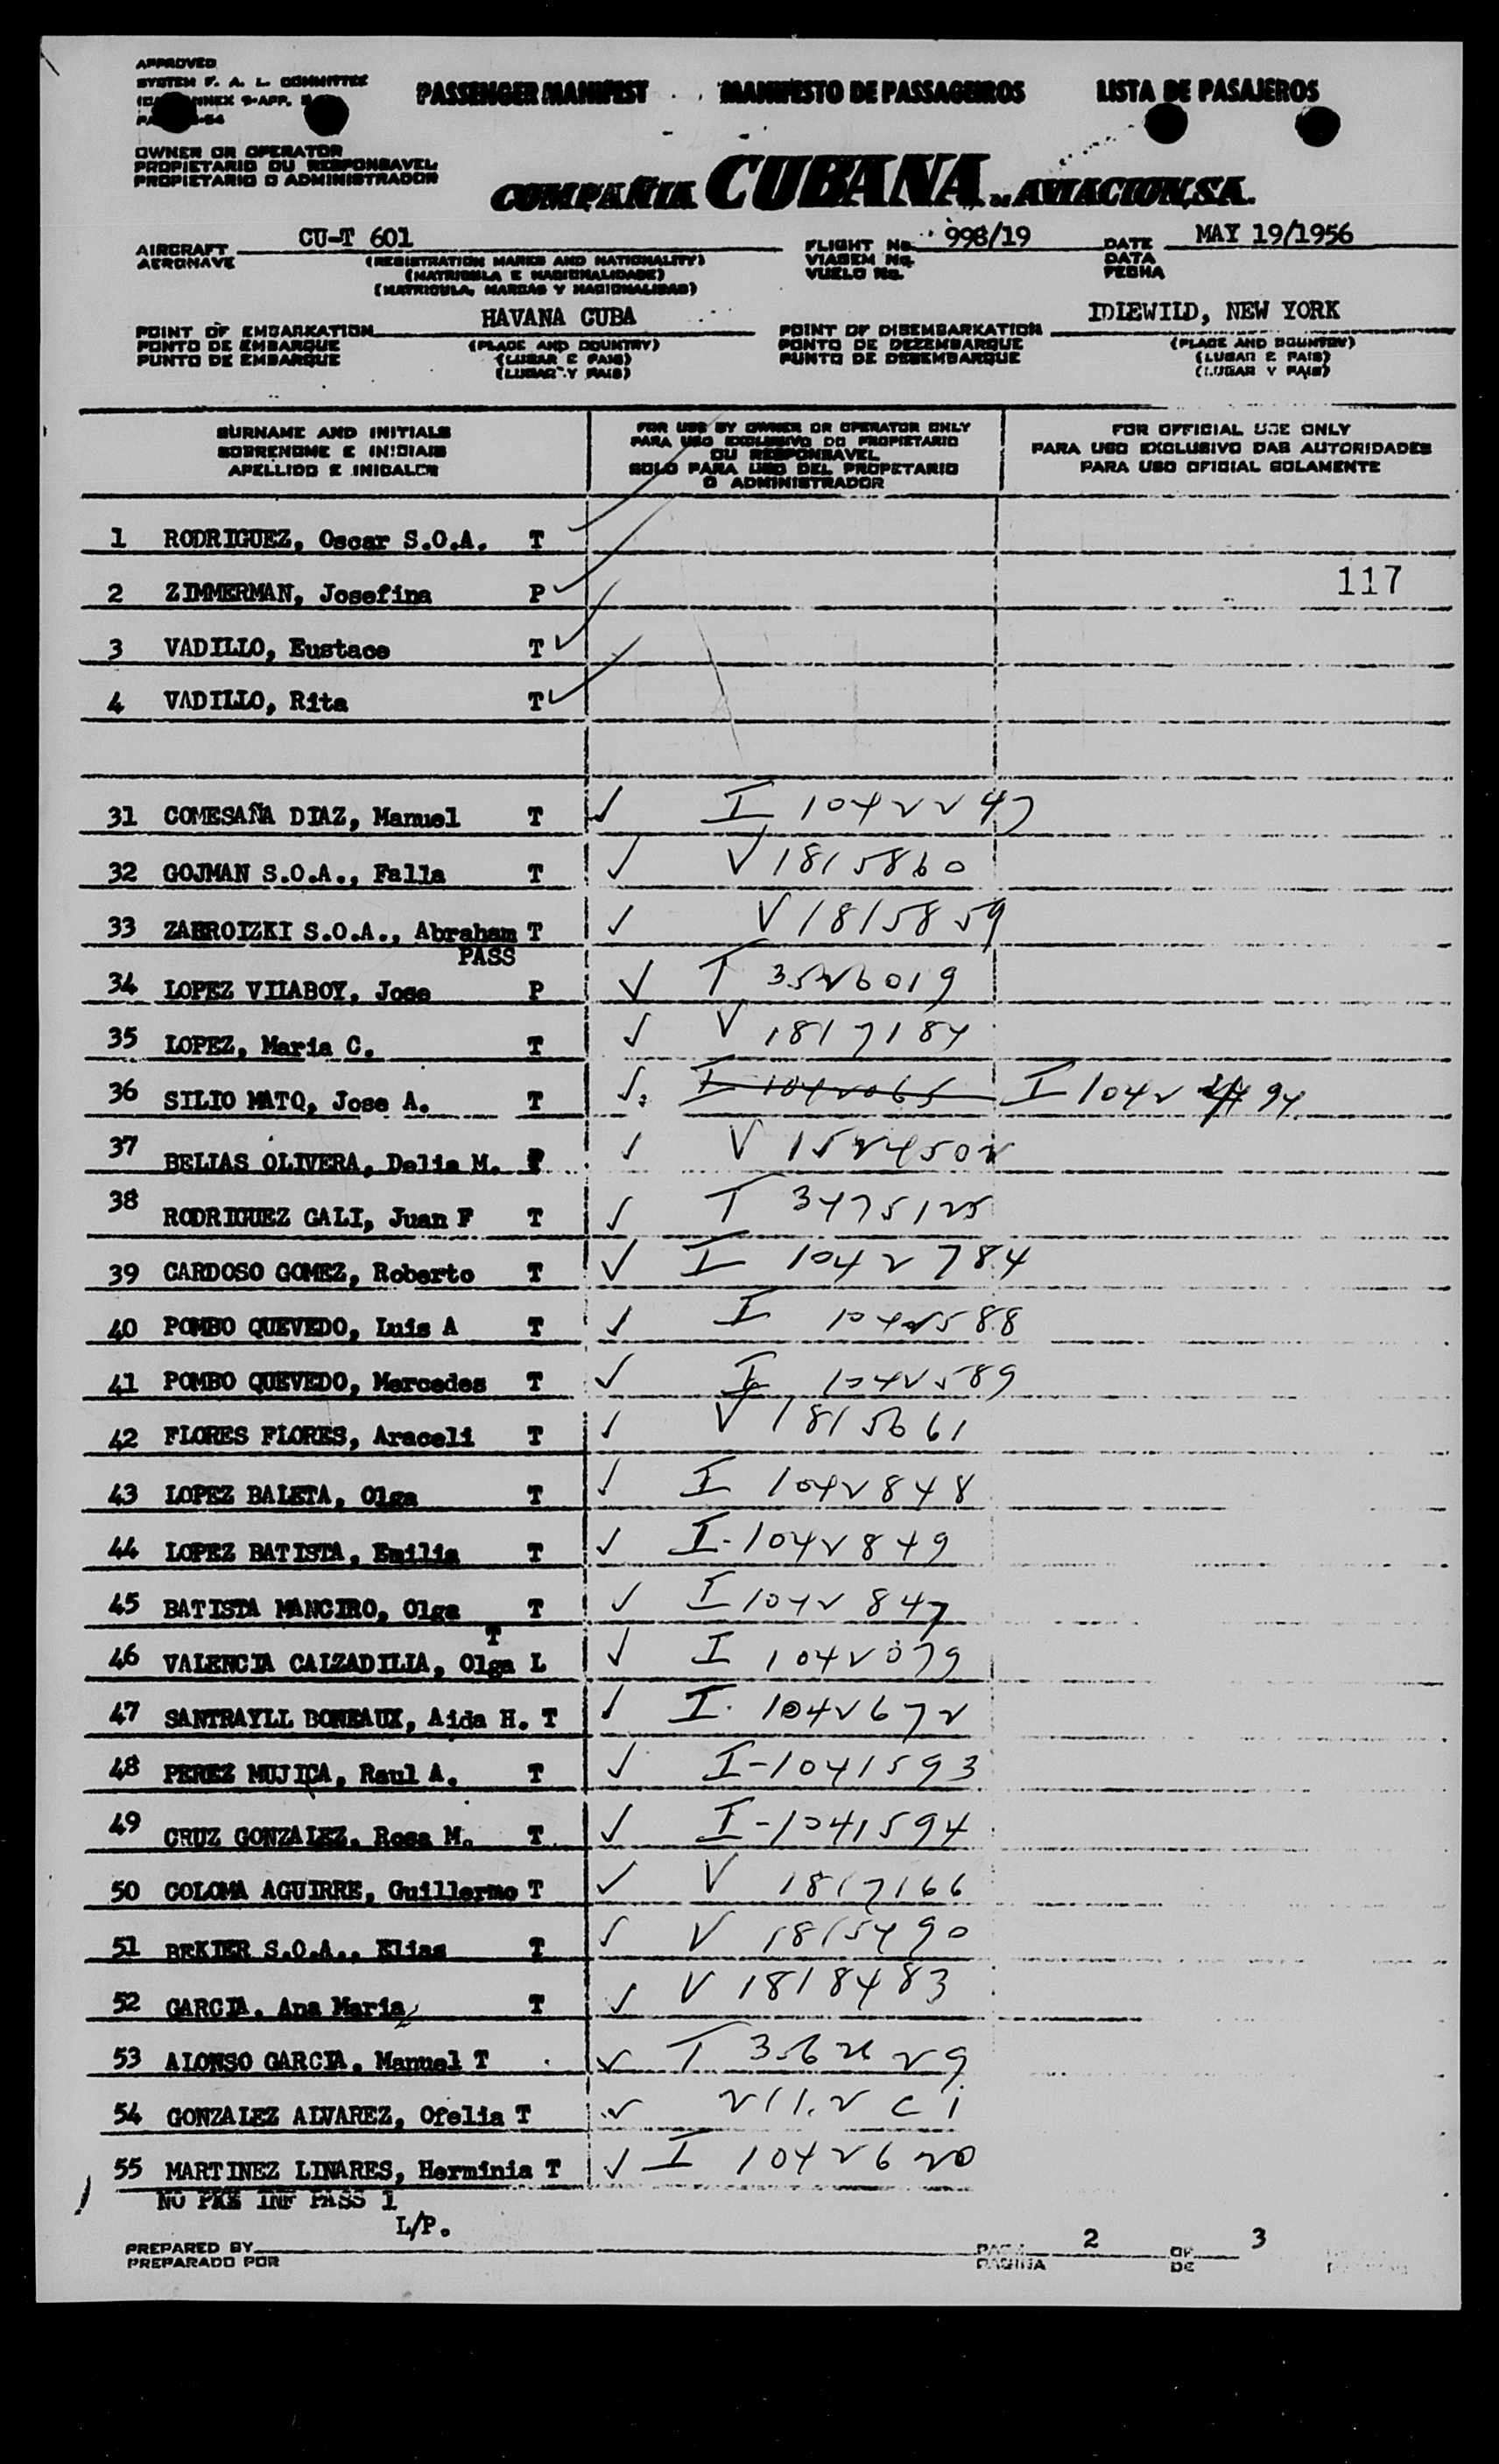 APPROVED
SYSTEM F. A. L. COMMITTEE
ANNEX 9-APP.
PASSENGER MANIFEST MANIFESTO DE PASSAGEIROS LISTA DE PASAJEROS
OWNER OR OPERATOR
PROPIETARIO OU RESPONSAVEL
PROPIETARIO O ADMINISTRADOR
COMPAÑIA CUBANA DE AVIACION, S.A.
AIRCRAFT CU-T 601 FLIGHT No. 998/19 DATE MAY 19/1956
AERONAVE (REGISTRATION MARKS AND NATIONALITY) VIAGEM No. DATA
(MATRICULA E NACIONALIDADE) VUELO No. FECHA
(MATRICULA, MARCAS Y NACIONALIDAD)
POINT OF EMBARKATION HAVANA CUBA POINT OF DISEMBARKATION IDLEWILD, NEW YORK
PONTO DE EMBARQUE (PLACE AND COUNTRY) PONTO DE DEZEMBARQUE (PLACE AND COUNTRY)
PUNTO DE EMBARQUE (LUGAR E PAIS) PUNTO DE DESEMBARQUE (LUGAR E PAIS)
(LUGAR Y PAIS) (LUGAR Y PAIS)
SURNAME AND INITIALS
SOBRENOME E INIDIAIS
APELLIDO E INICALES
FOR USE BY OWNER OR OPERATOR ONLY
PARA USO EXCLUSIVO DO PROPIETARIO
OU RESPONSAVEL
SOLO PARA USO DEL PROPETARIO
O ADMINISTRADOR
FOR OFFICIAL USE ONLY
PARA USO EXCLUSIVO DAS AUTORIDADES
PARA USO OFICIAL SOLAMENTE
1 RODRIGUEZ, Oscar S.O.A. T
2 ZIMMERMAN, Josefina P ✓ 117
3 VADILLO, Eustace T ✓
4 VADILLO, Rita T ✓
31 COMESAÑA DIAZ, Manuel T ✓ I 1042247
32 GOJMAN S.O.A., Falla T ✓ V 1815860
33 ZABROIZKI S.O.A., Abraham T ✓ V 1815859
PASS
34 LOPEZ VILABOY, Jose P ✓ T 3526019
35 LOPEZ, Maria C. T ✓ V 1817184
36 SILIO MATO, Jose A. T ✓ I 1042065 I 1042 94
37 BELIAS OLIVERA, Delia M. ✓ V 1524502
38 RODRIGUEZ GALI, Juan F T ✓ T 3475125
39 CARDOSO GOMEZ, Roberto T ✓ I 1042784
40 POMBO QUEVEDO, Luis A T ✓ I 1042588
41 POMBO QUEVEDO, Mercedes T ✓ I 1042589
42 FLORES FLORES, Araceli T ✓ V 1815661
43 LOPEZ BALETA, Olga T ✓ I 1042848
44 LOPEZ BATISTA, Emilia T ✓ I-1042849
45 BATISTA MANCIRO, Olga T ✓ I 1042847
T
46 VALENCIA CALZADILIA, Olga L ✓ I 1042079
47 SANTRAYLL BONEAUX, Aida H. T ✓ I. 1042672
48 PEREZ MUJICA, Raul A. T ✓ I-1041593
49 CRUZ GONZALEZ, Rosa M. T ✓ I-1041594
50 COLOMA AGUIRRE, Guillermo T ✓ V 1817166
51 BEKIER S.O.A., Elias T ✓ V 1815490
52 GARCIA, Ana Maria T ✓ V 1818483
53 ALONSO GARCIA, Manuel T ✓ T
54 GONZALEZ ALVAREZ, Ofelia T ✓
55 MARTINEZ LINARES, Herminia T ✓ I 1042620
NO PKE INF PASS 1
L/P.
PREPARED BY
PREPARADO POR
PAGINA 2 OF 3
DE